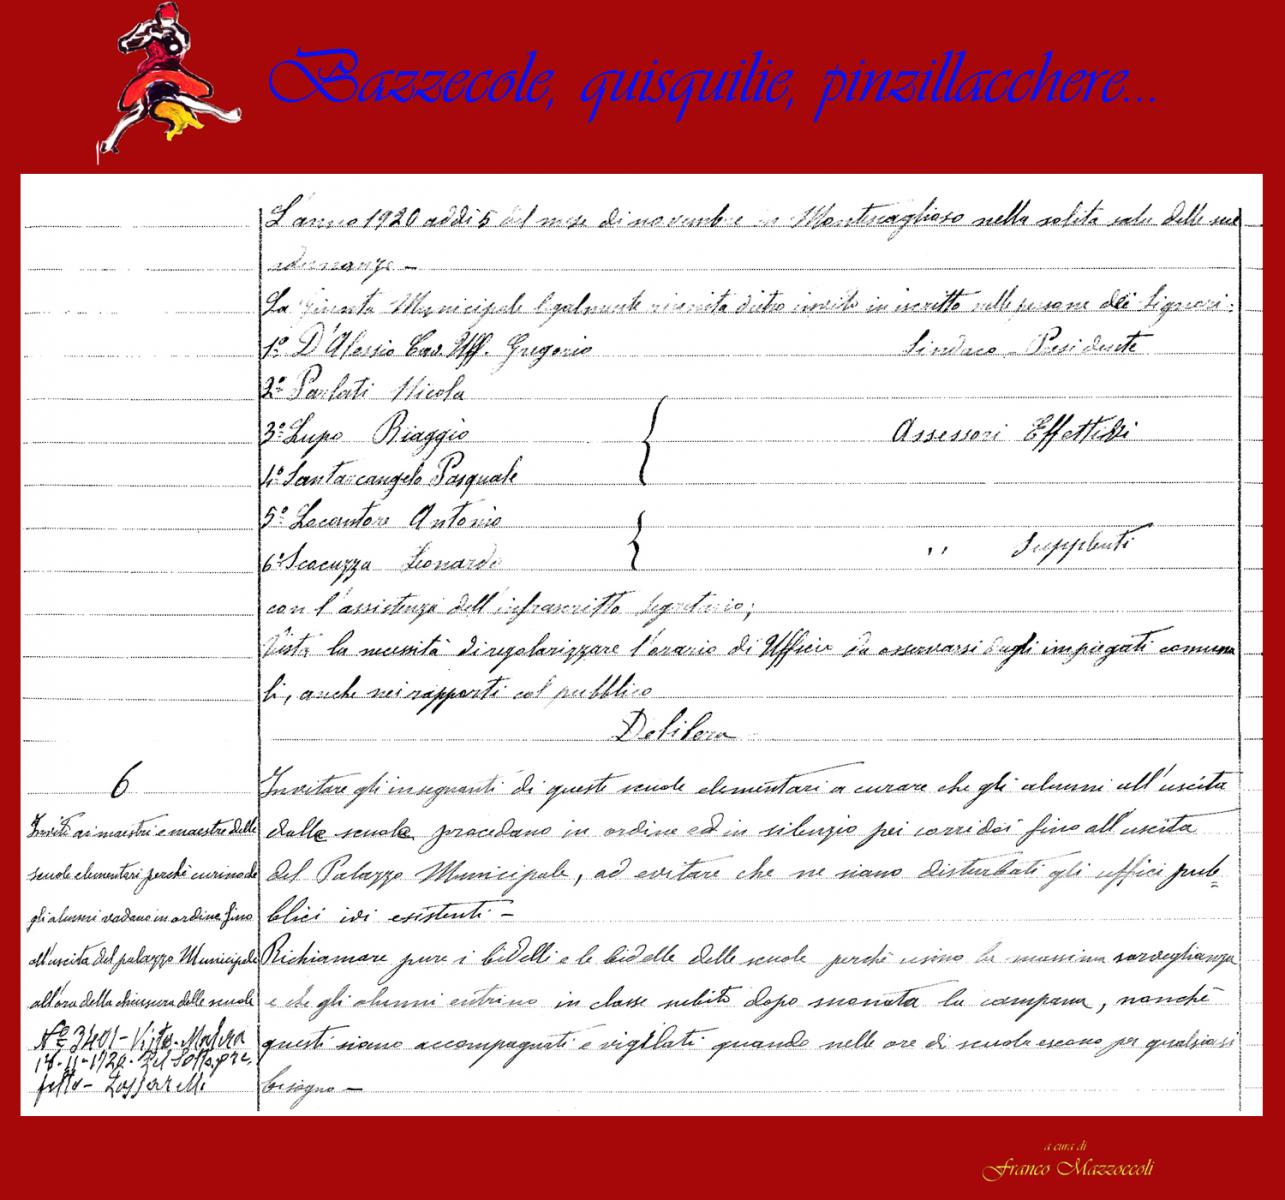 Bazzecole, quisquilie, pinzillacchere...
L'anno 1920 addì 5 del mese di novembre in Montescaglioso nella solita sala delle sue
adunanze -
La Giunta Municipale legalmente riunita dietro invito in iscritto nelle persone dei Signori:
1° D'Alessio Cav. Uff. Gregorio Sindaco - Presidente
2° Parlati Nicola
3° Lupo Biaggio Assessori Effettivi
4° Santarcangelo Pasquale
5° Locantore Antonio
6° Scocuzza Leonardo " Supplenti
con l'assistenza dell'infrascritto Segretario;
Vista la necessità di regolarizzare l'orario di Ufficio da osservarsi dagli impiegati comuna
li, anche nei rapporti col pubblico
Delibera
6
Invitare gli insegnanti di queste scuole elementari a curare che gli alunni all'uscita
dalle scuole procedano in ordine ed in silenzio pei corridoi fino all'uscita
del Palazzo Municipale, ad evitare che ne siano disturbati gli uffici pub=
blici ivi esistenti -
Richiamare pure i bidelli e le bidelle delle scuole perchè usino la massima sorveglianza
e che gli alunni entrino in classe subito dopo suonata la campana, nonchè
questi siano accompagnati e vigilati quando nelle ore di scuola escono per qualsiasi
bisogno -
Inviti ai maestri e maestre delle
scuole elementari perchè curino che
gli alunni vadano in ordine fino
all'uscita del palazzo Municipale
all'ora della chiusura delle scuole
N° 3401 - Visto - Matera
18-11-1920. Pel Sottopre
fetto -
a cura di
Franco Mazzoccoli